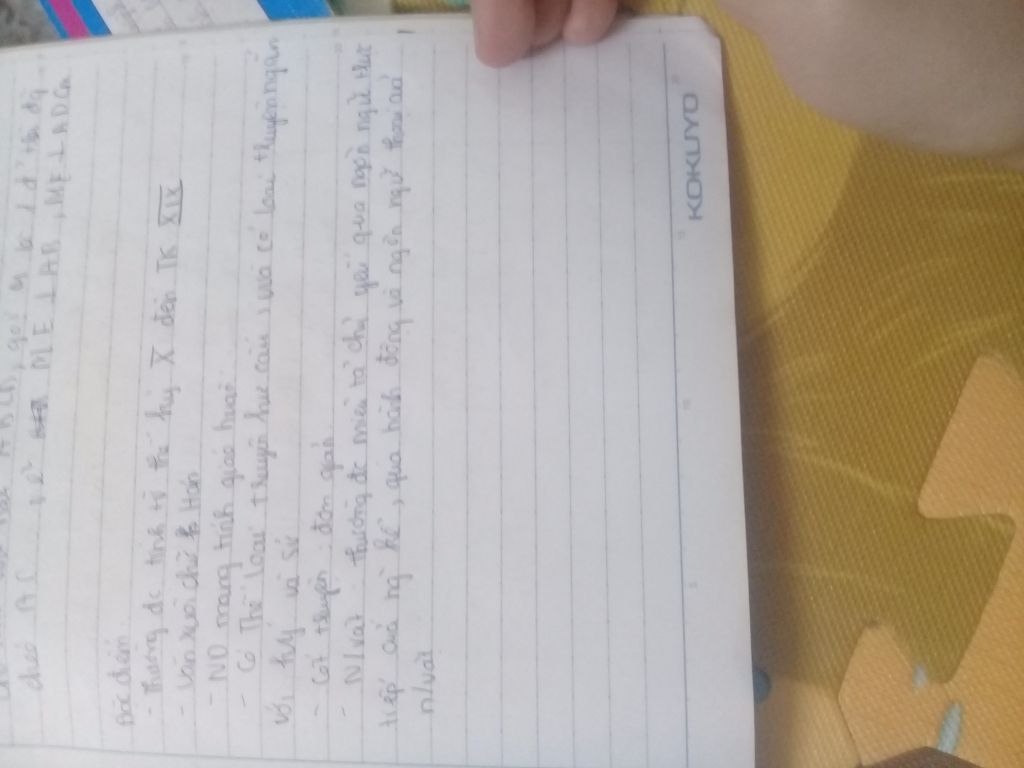 chéo AC vẽ ME ⊥ AB, ME ⊥ AD Cm
Đặc điểm.
- Thường đc tính từ thế kỷ X đến TK XIX
- Văn xuôi chữ Hán
- ND mang tính giáo huấn
- Có thể loại truyện hư cấu, vừa có loại truyện ngắn
với ký và sử
- Cốt truyện: đơn giản.
- N/vật: thường đc miêu tả chủ yếu qua ngôn ngữ trực
tiếp của ng kể, qua hành động và ngôn ngữ thoại của
n/vật
KOKUYO